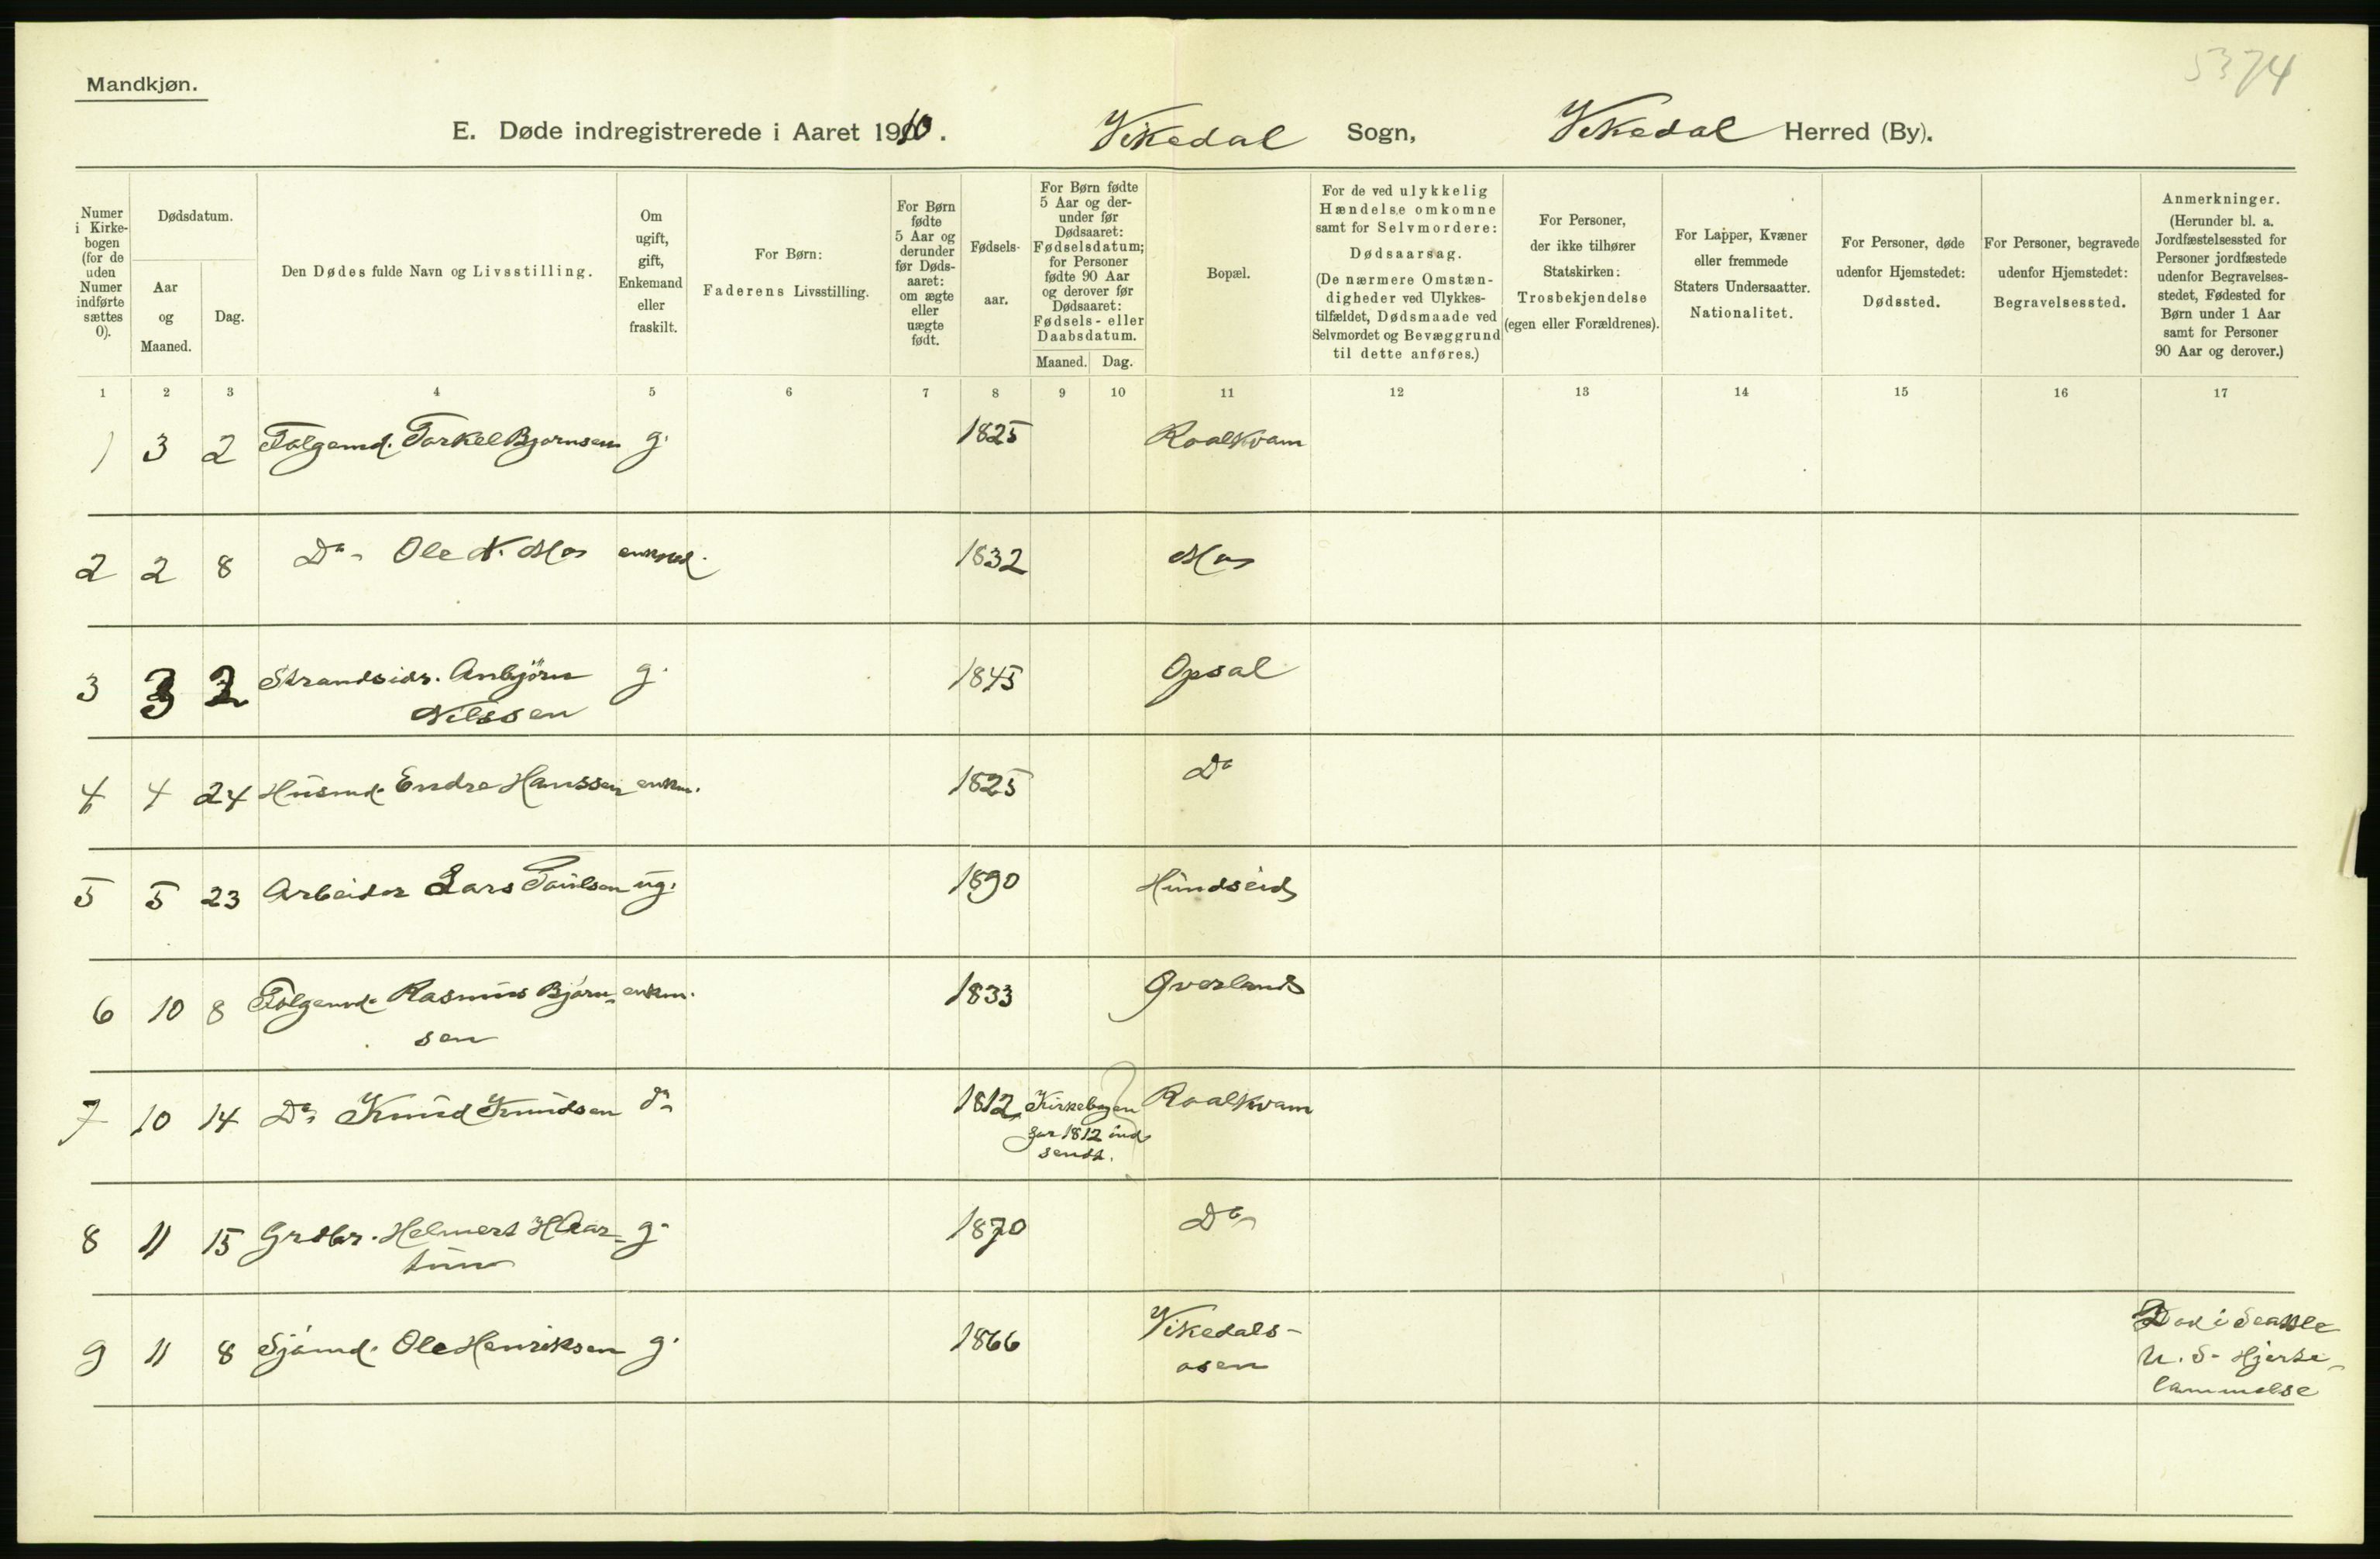 5374
Mandkjøn.
E. Døde indregistrerede i Aaret 1910. Vikedal Sogn, Vikedal Herred (By).
Numer i Kirke-bogen (for de uden Numer indførte sættes 0).
Dødsdatum.
Aar og Maaned.
Dag.
Den Dødes fulde Navn og Livsstilling.
Om ugift, gift, Enkemand eller fraskilt.
For Børn: Faderens Livsstilling.
For Børn fødte 5 Aar og derunder før Døds-aaret: om ægte eller uægte født.
Fødsels-aar.
For Børn fødte 5 Aar og der-under før Dødsaaret: Fødselsdatum; for Personer fødte 90 Aar og derover før Dødsaaret: Fødsels- eller Daabsdatum.
Maaned. Dag.
Bopæl.
For de ved ulykkelig Hændelse omkomne samt for Selvmordere: Dødsaarsag. (De nærmere Omstæn-digheder ved Ulykkes-tilfældet, Dødsmaade ved Selvmordet og Bevæggrund til dette anføres.)
For Personer, der ikke tilhører Statskirken: Trosbekjendelse (egen eller Forældrenes).
For Lapper, Kvæner eller fremmede Staters Undersaatter. Nationalitet.
For Personer, døde udenfor Hjemstedet: Dødssted.
For Personer, begravede udenfor Hjemstedet: Begravelsessted.
Anmerkninger. (Herunder bl. a. Jordfæstelsessted for Personer jordfæstede udenfor Begravelses-stedet, Fødested for Børn under 1 Aar samt for Personer 90 Aar og derover.)
1 2 3 4 5 6 7 8 9 10 11 12 13 14 15 16 17
1 3 2 Folgemd. Torkel Bjørnsen g. 1825 Roalkvam
2 2 8 Do Ole N. Mo 1832
3 3 2 Strandsidr. Anbjörn g. 1845 Opsal
Nilssen
4 4 24 Husmd. Endre Hanssen enkm. 1825 Do
5 5 23 Arbeider Lars Paulsen ug. 1890 Hundseid
6 10 8 Folgemd. Rasmus Bjørn- enkm. 1833 Øverland
sen
7 10 14 Do Knud Knudsen do 1812 Kirkebogen Roalkvam
for 1812 ind
sendt.
8 11 15 Grdbr. Helmert H Aar- g. 1870 Do
tun
9 11 8 Sjömd. Ole Henriksen g. 1866 Vikedals- Död i Seattle
osen U. S. Hjerte-
lammelse